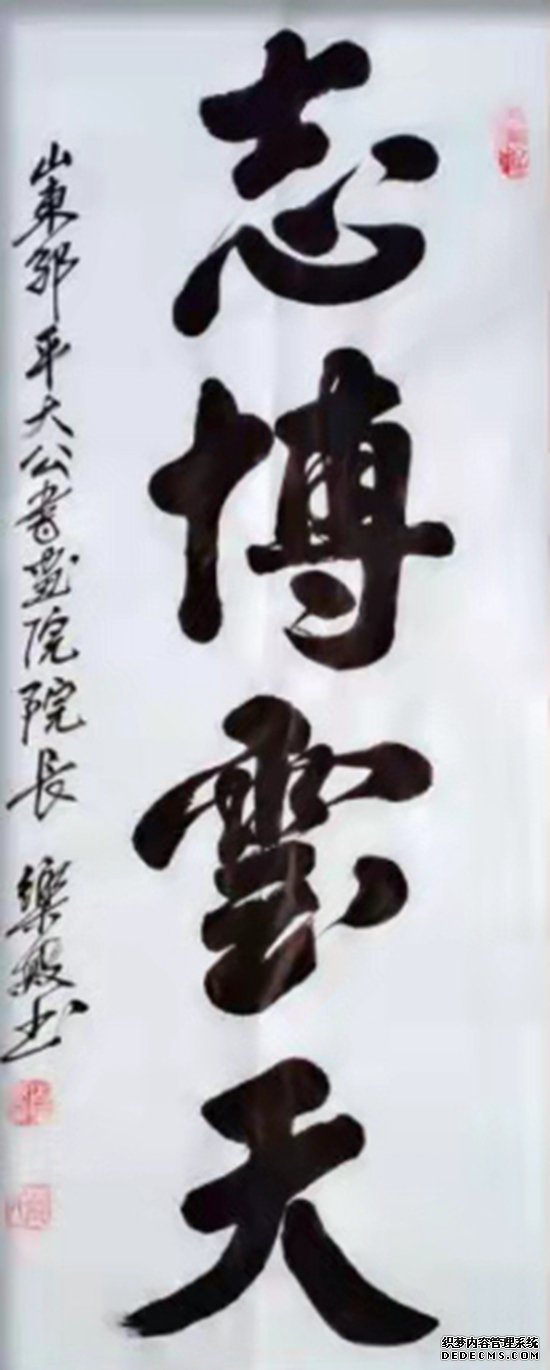 志博雲天
山東邹平大公書画院院長 樂毅书
织梦内容管理系统
DEDECMS.COM